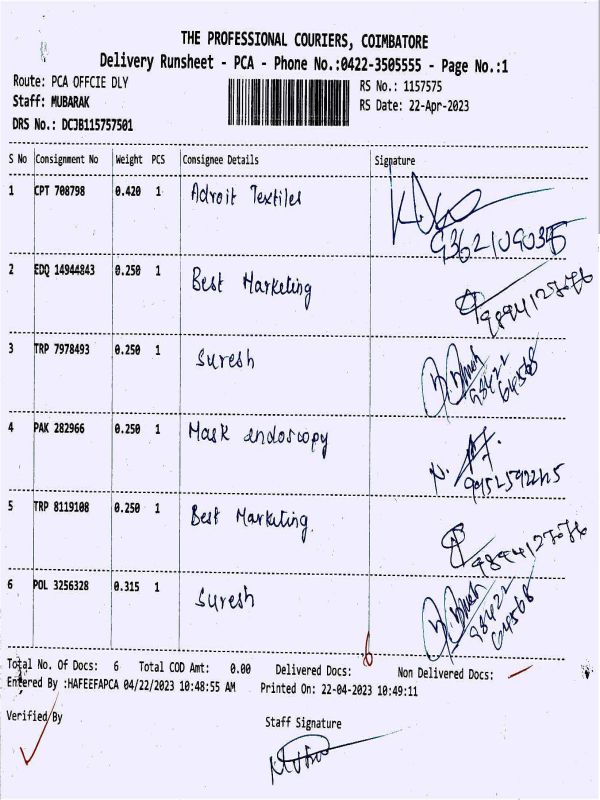 THE PROFESSIONAL COURIERS, COIMBATORE
Delivery Runsheet - PCA - Phone No.:0422-3505555 - Page No.:1
Route: PCA OFFCIE DLY
RS No.: 1157575
Staff: MUBARAK
RS Date: 22-Apr-2023
DRS No.: DCJB115757501
S No Consignment No Weight PCS Consignee Details Signature
1 CPT 708798 0.420 1 Adroit Textiles
2 EDQ 14944843 0.250 1 Best Marketing
3 TRP 7978493 0.250 1 Suresh
98422
64568
4 PAK 282966 0.250 1 Mask endoscopy
5 TRP 8119108 0.250 1 Best Marketing
6 POL 3256328 0.315 1 Suresh
98422
64568
Total No. Of Docs: 6 Total COD Amt: 0.00 Delivered Docs: 6 Non Delivered Docs: -
Entered By :HAFEEFAPCA 04/22/2023 10:48:55 AM Printed On: 22-04-2023 10:49:11
Verified By
Staff Signature